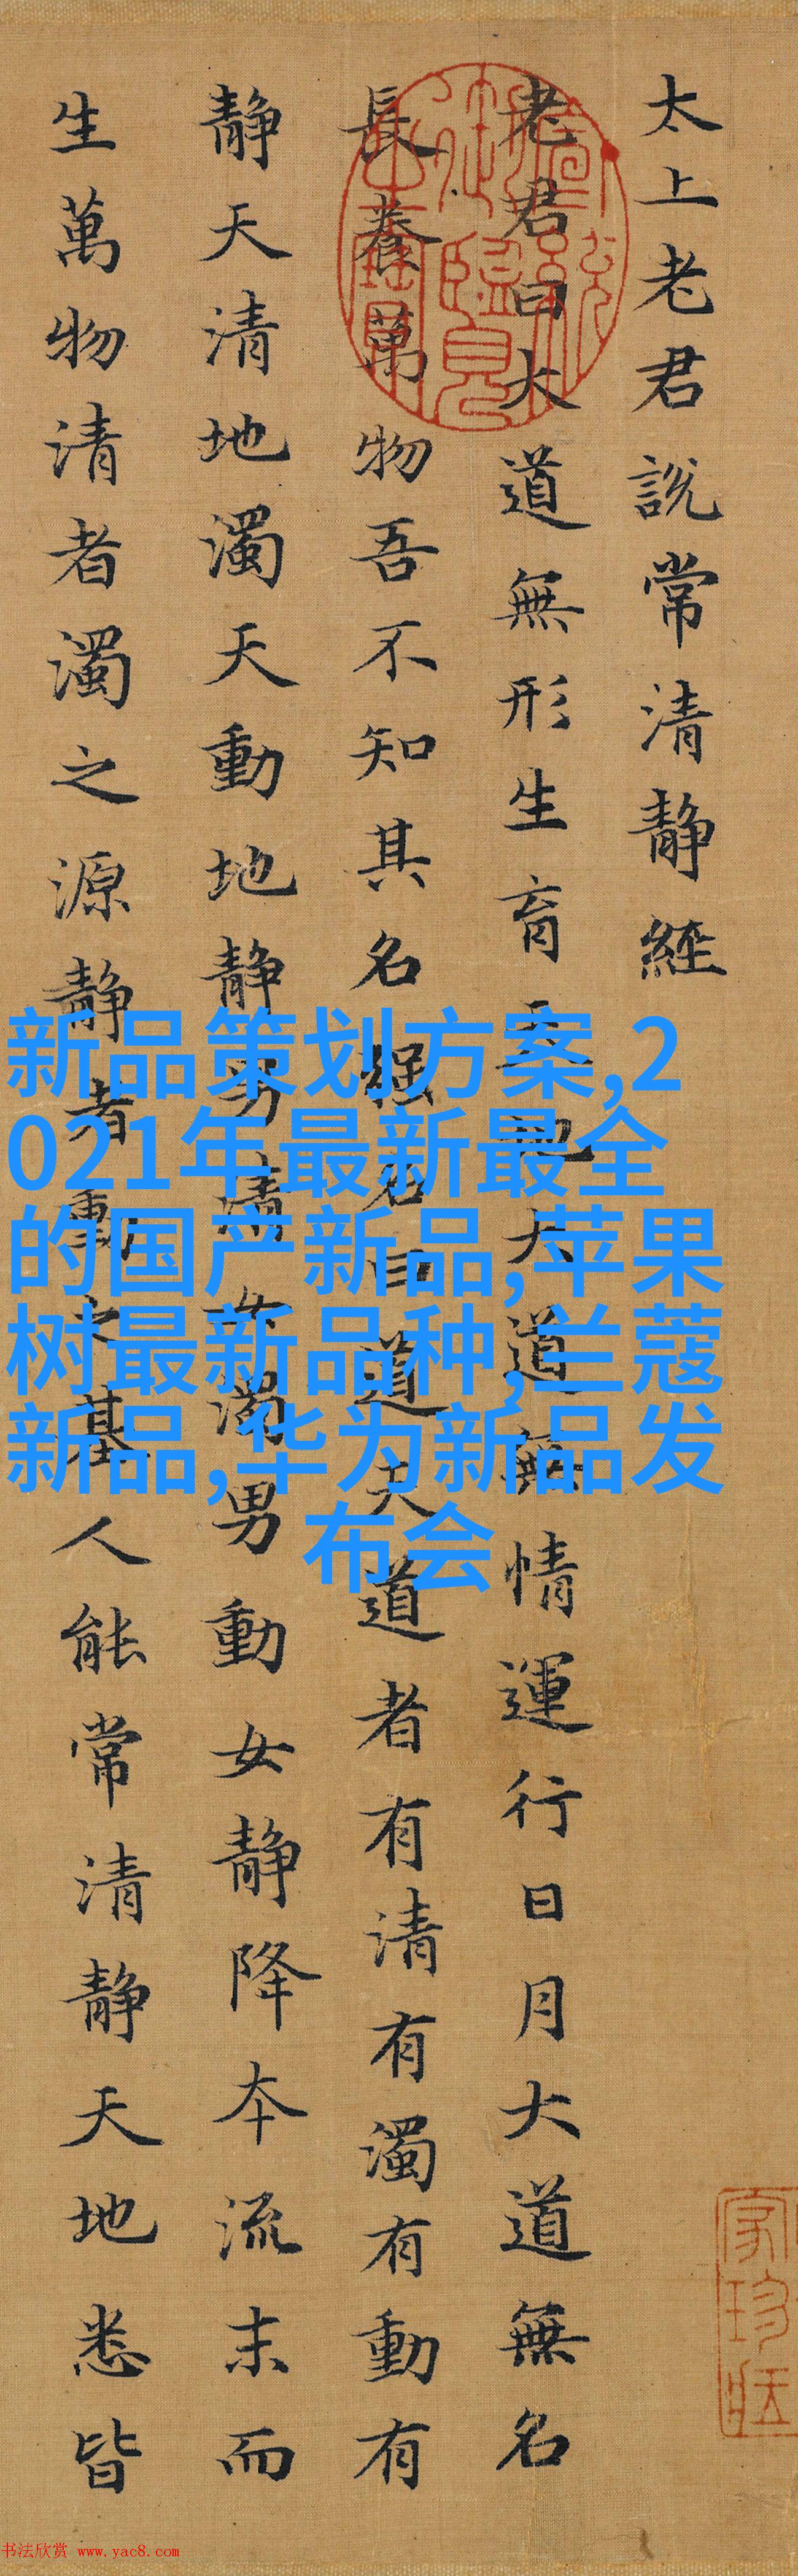 太上老君說常清静經
老君曰大道無形生育天地大道無情運行日月大道無名
長養萬物吾不知其名强名曰道夫道者有清有濁有動有
静天清地濁天動地静男清女濁男動女静降本流末而
生萬物清者濁之源静者動之基人能常清静天地悉皆
新品策划方案,2
021年最新最全
的国产新品,苹果
树最新品种,兰蔻
新品,华为新品发
布会
书法欣赏 www.yac8.com